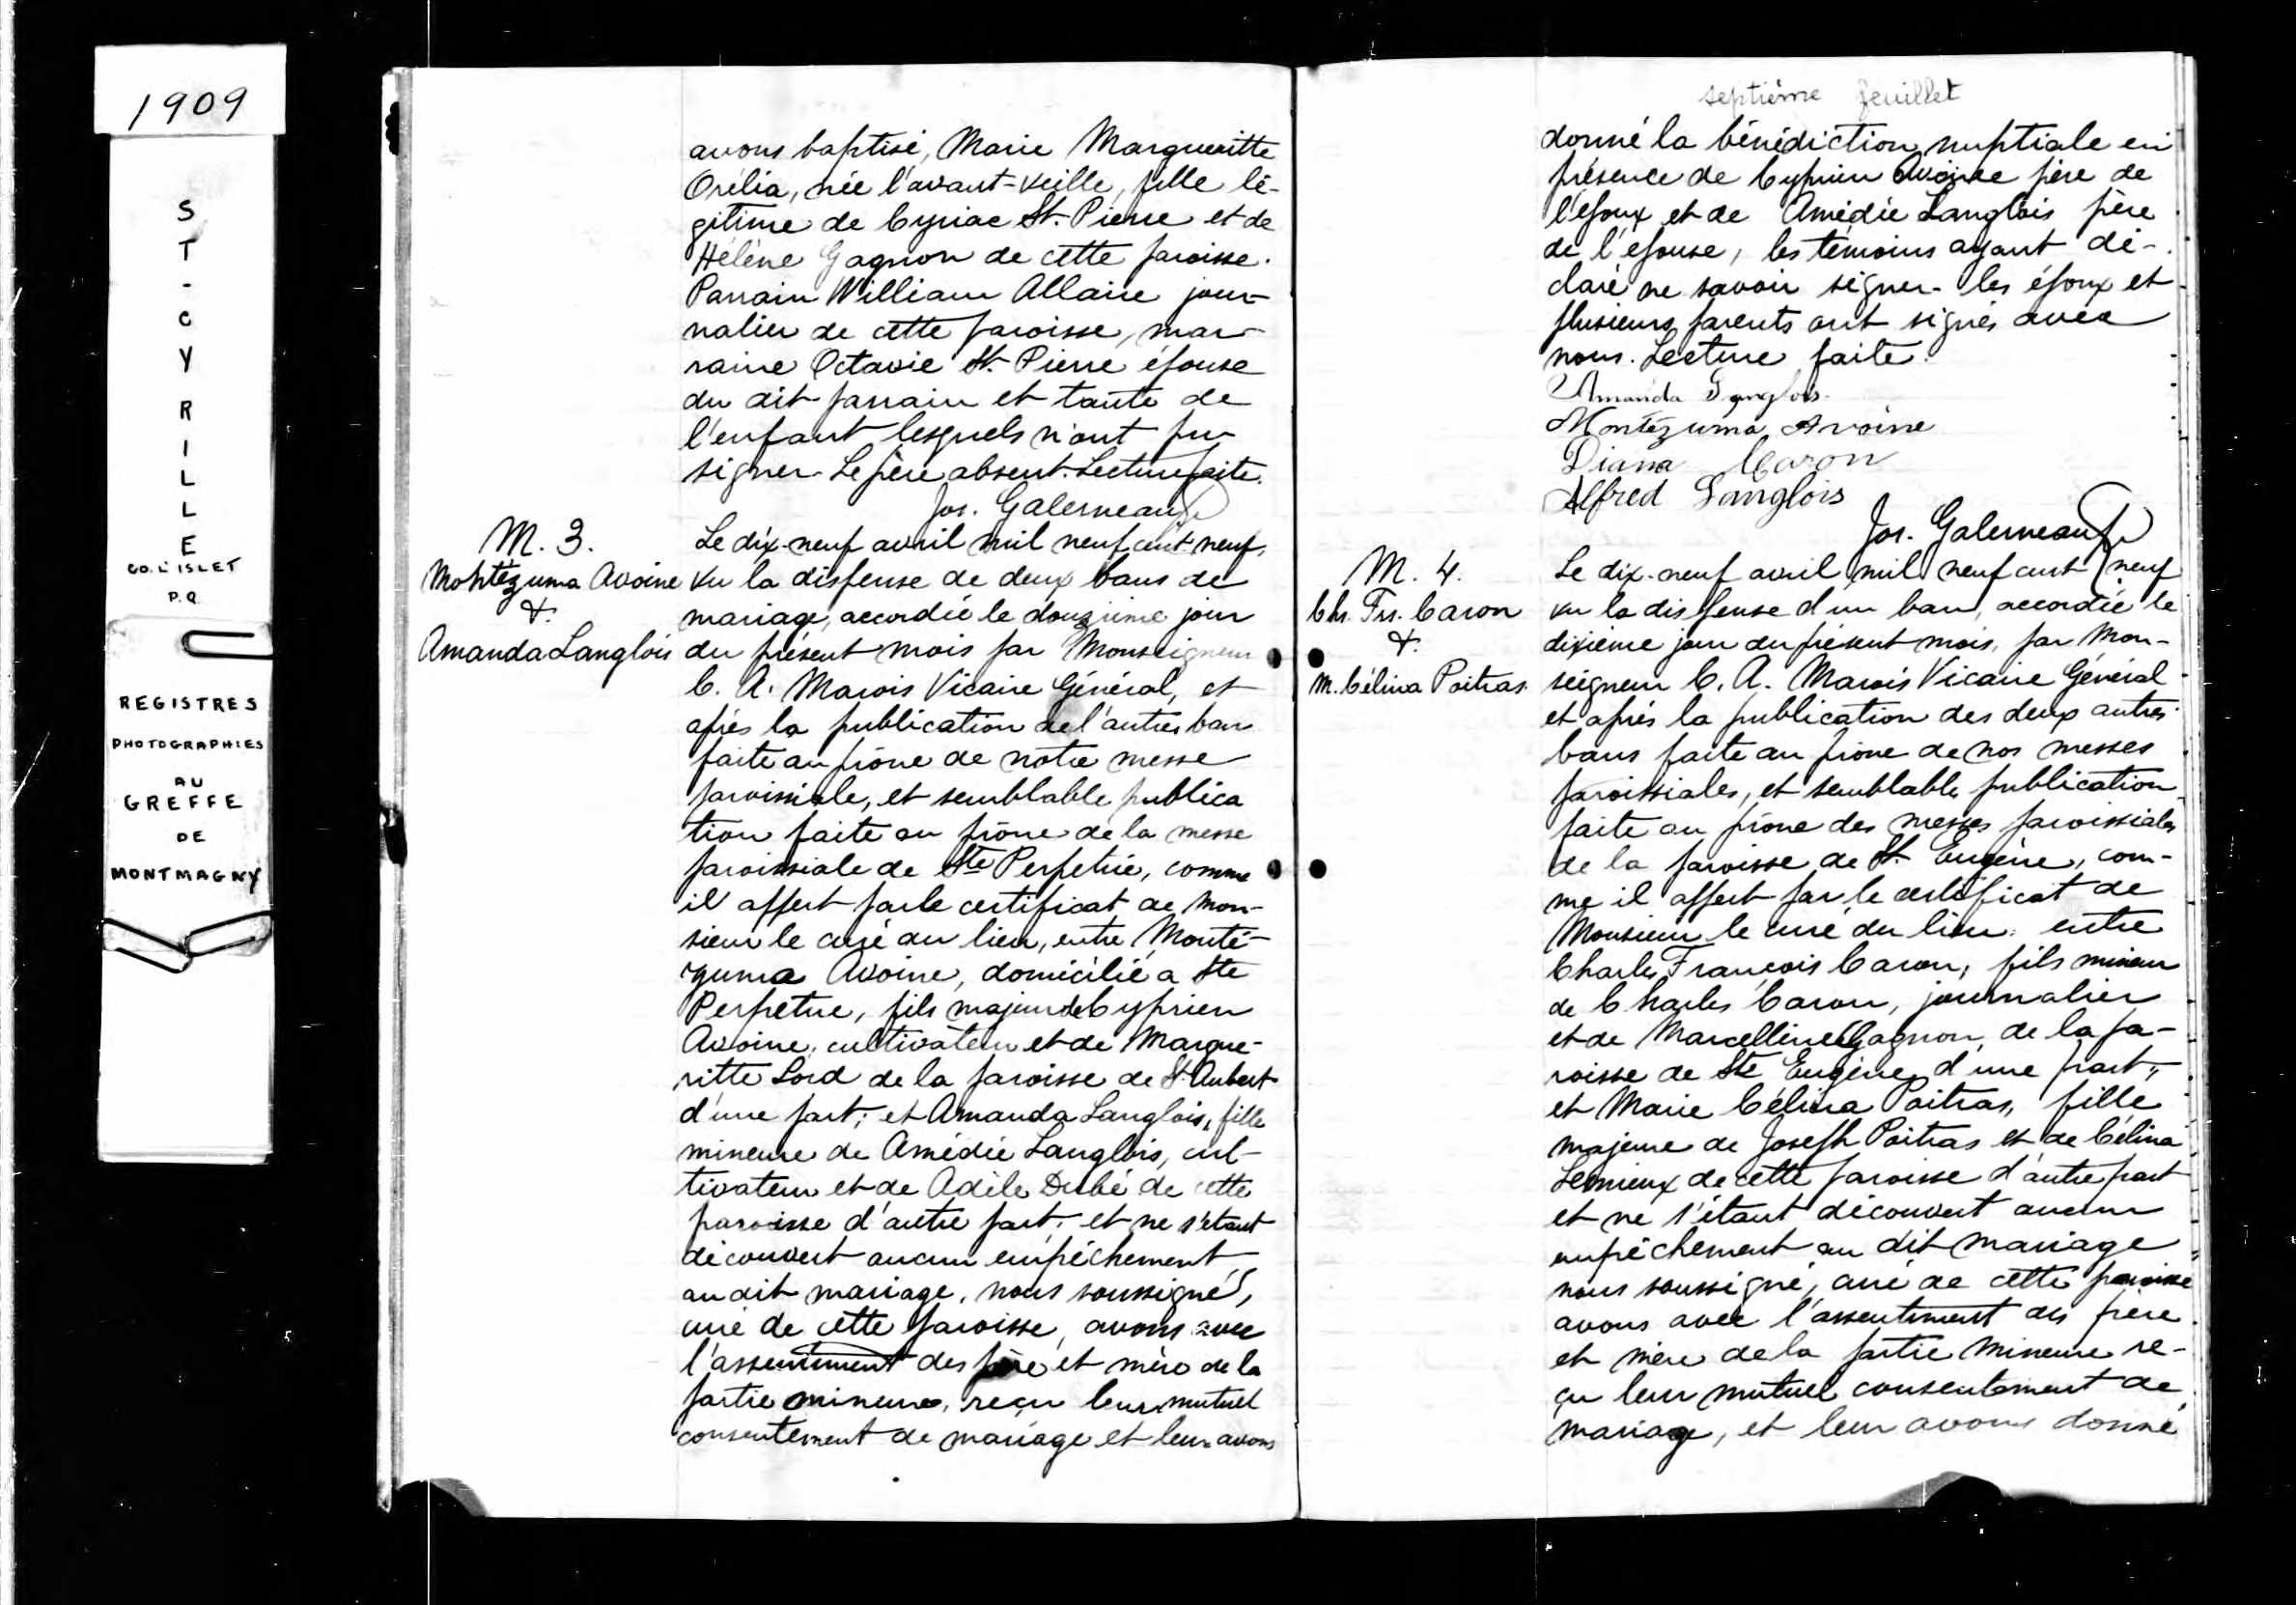 1909
S
T
-
C
Y
R
I
L
L
E
CO. L'ISLET
P.Q.
REGISTRES
PHOTOGRAPHIES
AU
GREFFE
DE
MONTMAGNY
avons baptisé, Marie Margueritte
Orélia, née l'avant-veille, fille lé-
gitime de Cyriac St. Pierre et de
Hélène Gagnon de cette paroisse.
Parrain William Allaire jour-
nalier de cette paroisse, mar-
raine Octavie St. Pierre épouse
du dit parrain et tante de
l'enfant lesquels n'ont pu
signer. Le père absent. Lecture faite.
Jos. Galerneau Ptr
M. 3.
Montézuma Avoine
&
Amanda Langlois
Le dix-neuf avril mil neuf cent neuf,
vu la dispense de deux bans de
mariage, accordée le douzième jour
du présent mois par Monseigneur
C. A. Marois Vicaire Général, et
après la publication de l'autres ban
faite au prône de nôtre messe
paroissiale, et semblable publica
tion faite au prône de la messe
paroissiale de Ste Perpétue, comme
il appert par le certificat de Mon-
sieur le curé du lieu, entre Monté-
zuma Avoine, domicilié a Ste
Perpetue, fils majeur de Cyprien
Avoine, cultivateur et de Margue-
ritte Lord de la paroisse de St. Aubert
d'une part; et Amanda Langlois, fille
mineure de Amédée Langlois, cul-
tivateur et de Adèle Dubé de cette
paroisse d'autre part; et ne s'étant
découvert aucun empêchement
au dit mariage, nous soussigné,
curé de cette paroisse, avons avec
l'assentiment des père et mère de la
partie mineure, reçu leur mutuel
consentement de mariage et leur avons
septième feuillet
donné la bénédiction nuptiale en
présence de Cyprien Avoine père de
l'époux et de Amédée Langlois père
de l'épouse, les témoins ayant dé-
claré ne savoir signer. les époux et
plusieurs parents ont signés avec
nous. Lecture faite.
Amanda Langlois.
Montézuma Avoine
Diana Caron
Alfred Langlois
Jos. Galerneau Ptr
M. 4.
Chs. Frs. Caron
&
M. Célina Poitras.
Le dix-neuf avril mil neuf cent neuf
vu la dispense d'un ban, accordée le
dixième jour du présent mois, par Mon-
seigneur C. A. Marois Vicaire Général
et après la publication des deux autres
bans faite au prône de nos messes
paroissiales, et semblable publication
faite au prône des messes paroissiales
de la paroisse de St. Eugène, com-
me il appert par le certificat de
Monsieur le curé du lieu. entre
Charles François Caron, fils mineur
de Charles Caron, journalier
et de Marcelline Gagnon, de la pa-
roisse de Ste Eugène d'une part,
et Marie Célina Poitras, fille
majeure de Joseph Poitras et de Célina
Lemieux de cette paroisse d'autre part
et ne s'étant découvert aucun
empêchement au dit mariage
nous soussigné, curé de cette paroisse
avons avec l'assentiment des père
et mère de la partie mineure re-
çu leur mutuel consentement de
mariage, et leur avons donné